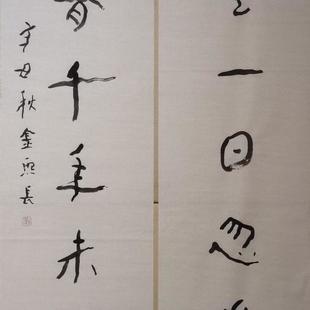 一日忽
千年未
辛丑秋金熙長